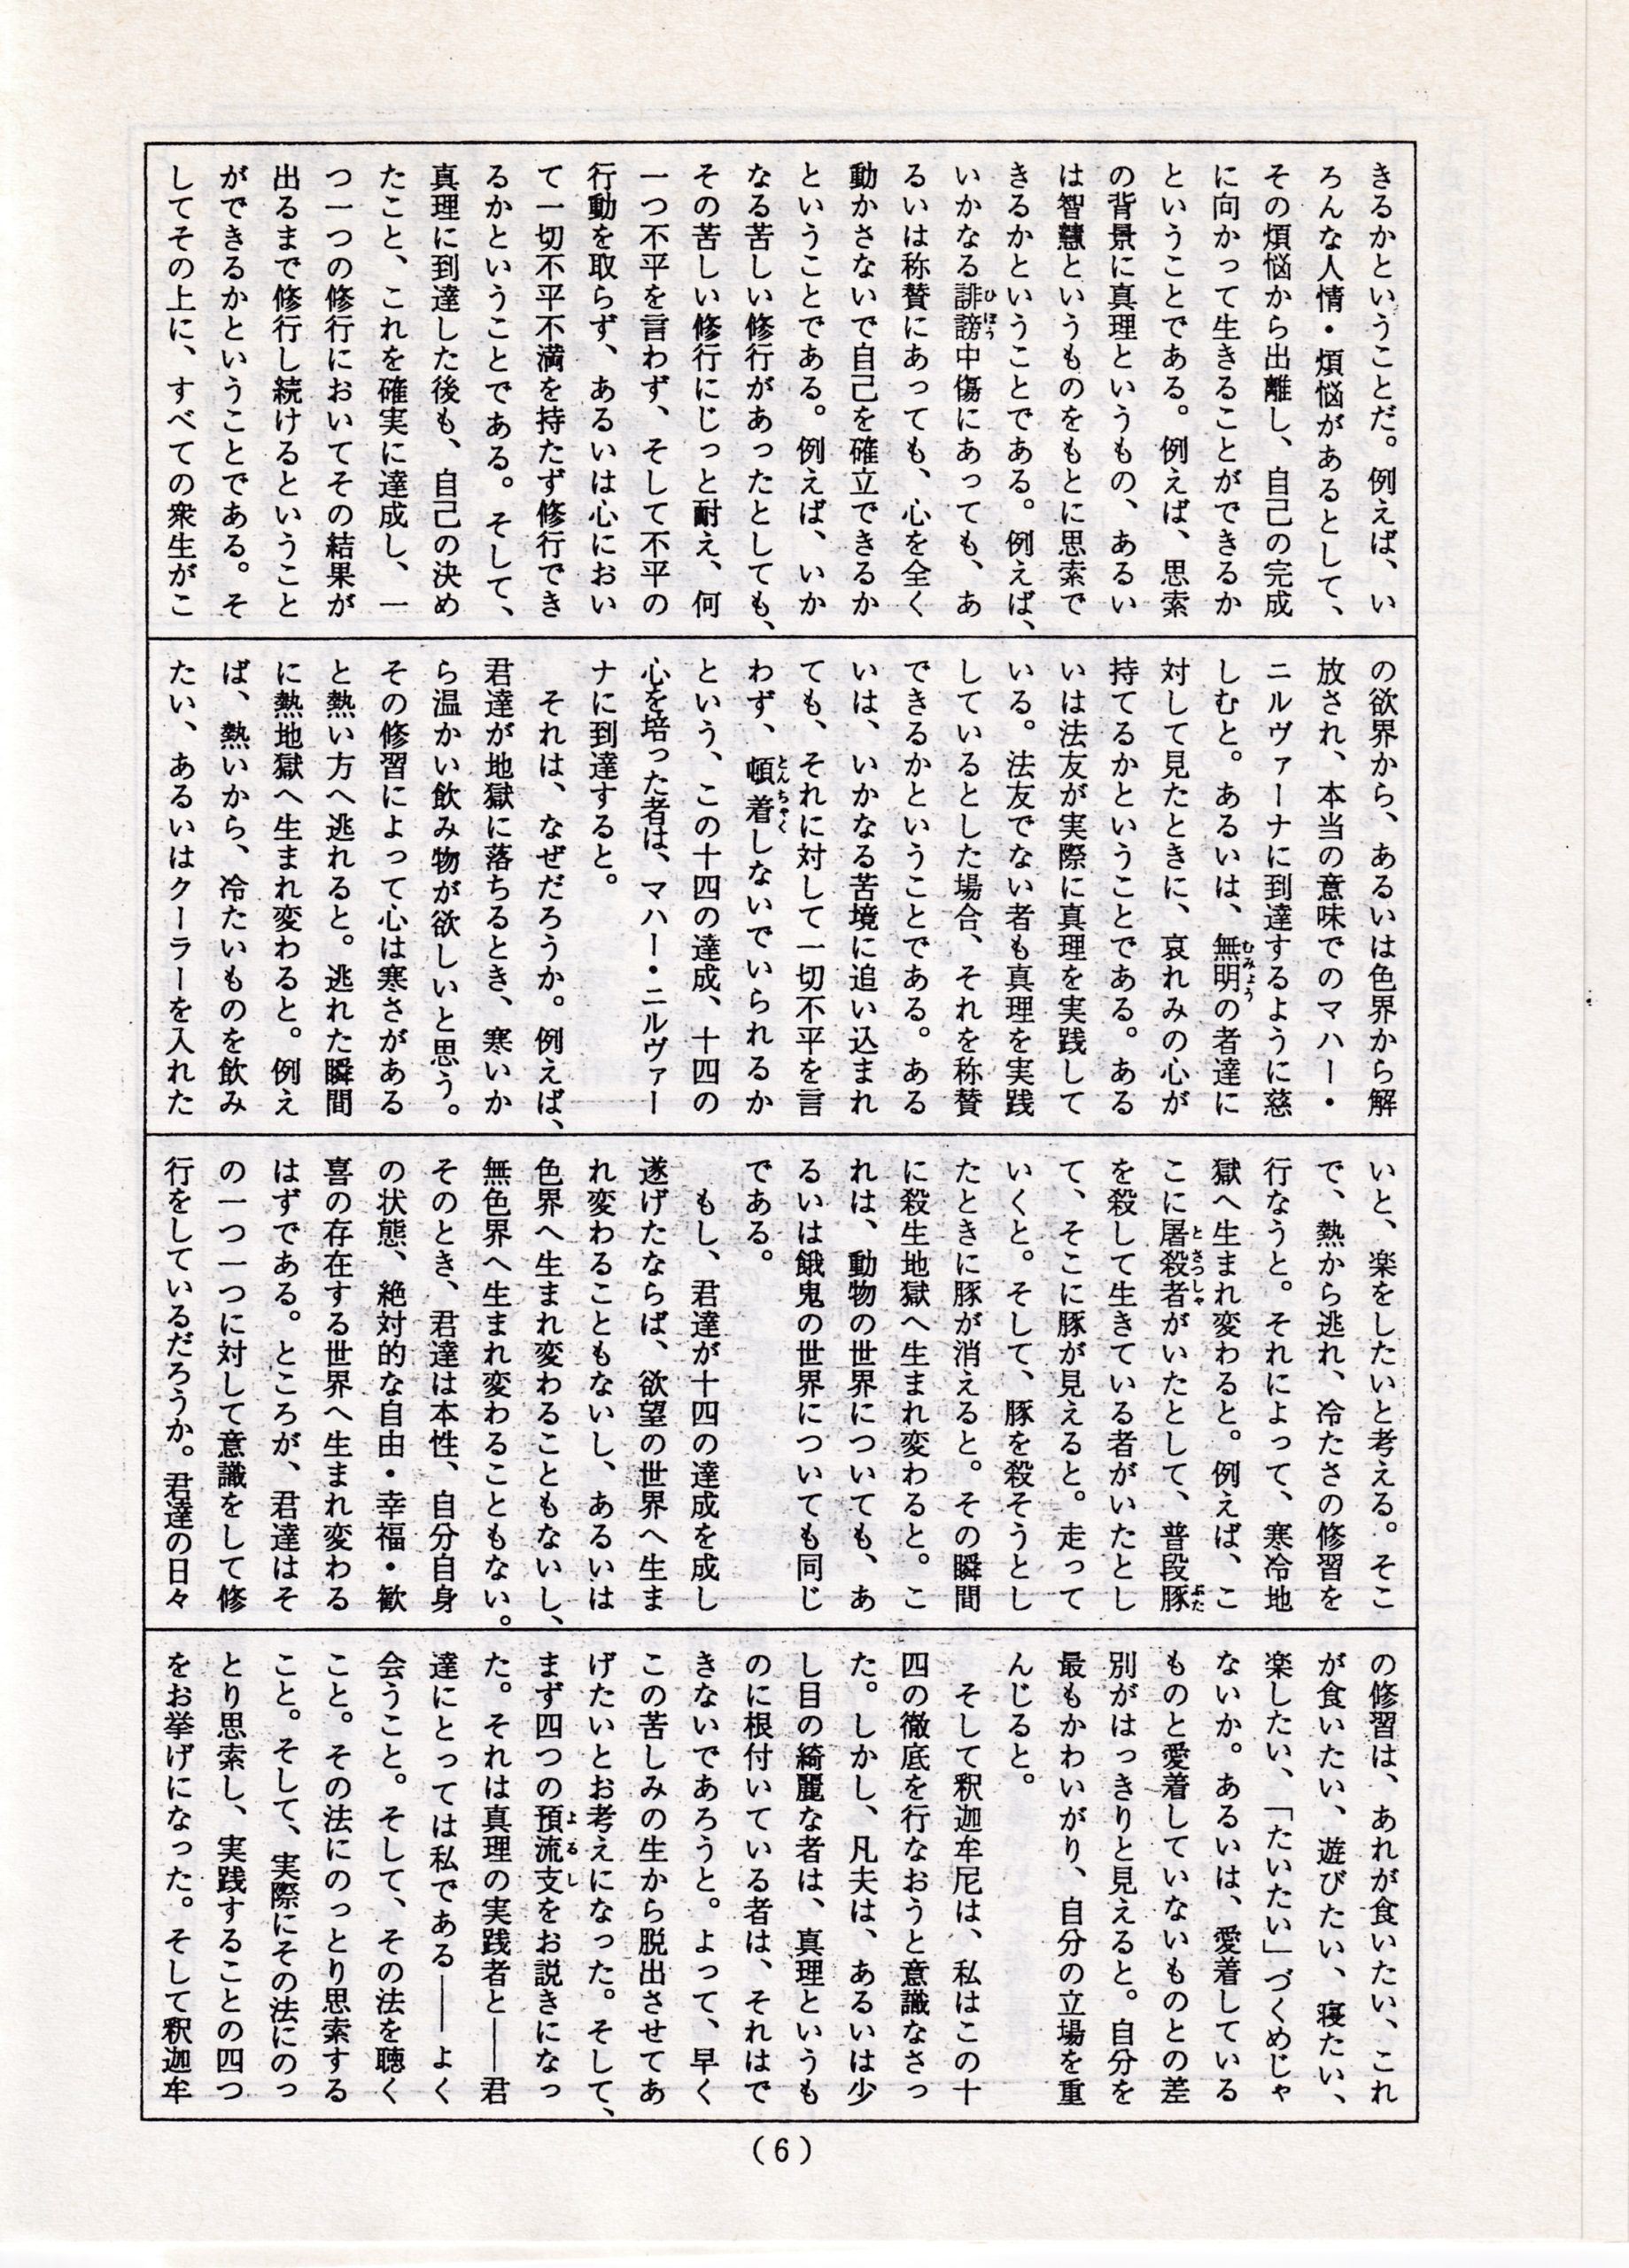 きるかということだ。例えば、い
ろんな人情・煩悩があるとして、
その煩悩から出離し、自己の完成
に向かって生きることができるか
ということである。例えば、思索
の背景に真理というもの、あるい
は智慧というものをもとに思索で
きるかということである。例えば、
いかなる誹謗中傷にあっても、あ
るいは称賛にあっても、心を全く
動かさないで自己を確立できるか
ということである。例えば、いか
なる苦しい修行があったとしても、
その苦しい修行にじっと耐え、何
一つ不平を言わず、そして不平の
行動を取らず、あるいは心におい
て一切不平不満を持たず修行でき
るかということである。そして、
真理に到達した後も、自己の決め
たこと、これを確実に達成し、一
つ一つの修行においてその結果が
出るまで修行し続けるということ
ができるかということである。そ
してその上に、すべての衆生がこ
の欲界から、あるいは色界から解
放され、本当の意味でのマハー・
ニルヴァーナに到達するように慈
しむと。あるいは、無明の者達に
対して見たときに、哀れみの心が
持てるかということである。ある
いは法友が実際に真理を実践して
いる。法友でない者も真理を実践
しているとした場合、それを称賛
できるかということである。ある
いは、いかなる苦境に追い込まれ
ても、それに対して一切不平を言
わず、頓着しないでいられるか
という、この十四の達成、十四の
心を培った者は、マハー・ニルヴァー
ナに到達すると。
それは、なぜだろうか。例えば、
君達が地獄に落ちるとき、寒いか
ら温かい飲み物が欲しいと思う。
その修習によって心は寒さがある
と熱い方へ逃れると。逃れた瞬間
に熱地獄へ生まれ変わると。例え
ば、熱いから、冷たいものを飲み
たい、あるいはクーラーを入れた
いと、楽をしたいと考える。そこ
で、熱から逃れ、冷たさの修習を
行なうと。それによって、寒冷地
獄へ生まれ変わると。例えば、こ
こに屠殺者がいたとして、普段豚
を殺して生きている者がいたとし
て、そこに豚が見えると。走って
いくと。そして、豚を殺そうとし
たときに豚が消えると。その瞬間
に殺生地獄へ生まれ変わると。こ
れは、動物の世界についても、あ
るいは餓鬼の世界についても同じ
である。
もし、君達が十四の達成を成し
遂げたならば、欲望の世界へ生ま
れ変わることもないし、あるいは
色界へ生まれ変わることもないし、
無色界へ生まれ変わることもない。
そのとき、君達は本性、自分自身
の状態、絶対的な自由・幸福・歓
喜の存在する世界へ生まれ変わる
はずである。ところが、君達はそ
の一つ一つに対して意識をして修
行をしているだろうか。君達の日々
の修習は、あれが食いたい、これ
が食いたい、遊びたい、寝たい、
楽したい、「たいたい」づくめじゃ
ないか。あるいは、愛着している
ものと愛着していないものとの差
別がはっきりと見えると。自分を
最もかわいがり、自分の立場を重
んじると。
そして釈迦牟尼は、私はこの十
四の徹底を行なおうと意識なさっ
た。しかし、凡夫は、あるいは少
し目の綺麗な者は、真理というも
のに根付いている者は、それはで
きないであろうと。よって、早く
この苦しみの生から脱出させてあ
げたいとお考えになった。そして、
まず四つの預流支をお説きになっ
た。それは真理の実践者と――君
達にとっては私である――よく
会うこと。そして、その法を聴く
こと。その法にのっとり思索する
こと。そして、実際にその法にのっ
とり思索し、実践することの四つ
をお挙げになった。そして釈迦牟
(6)